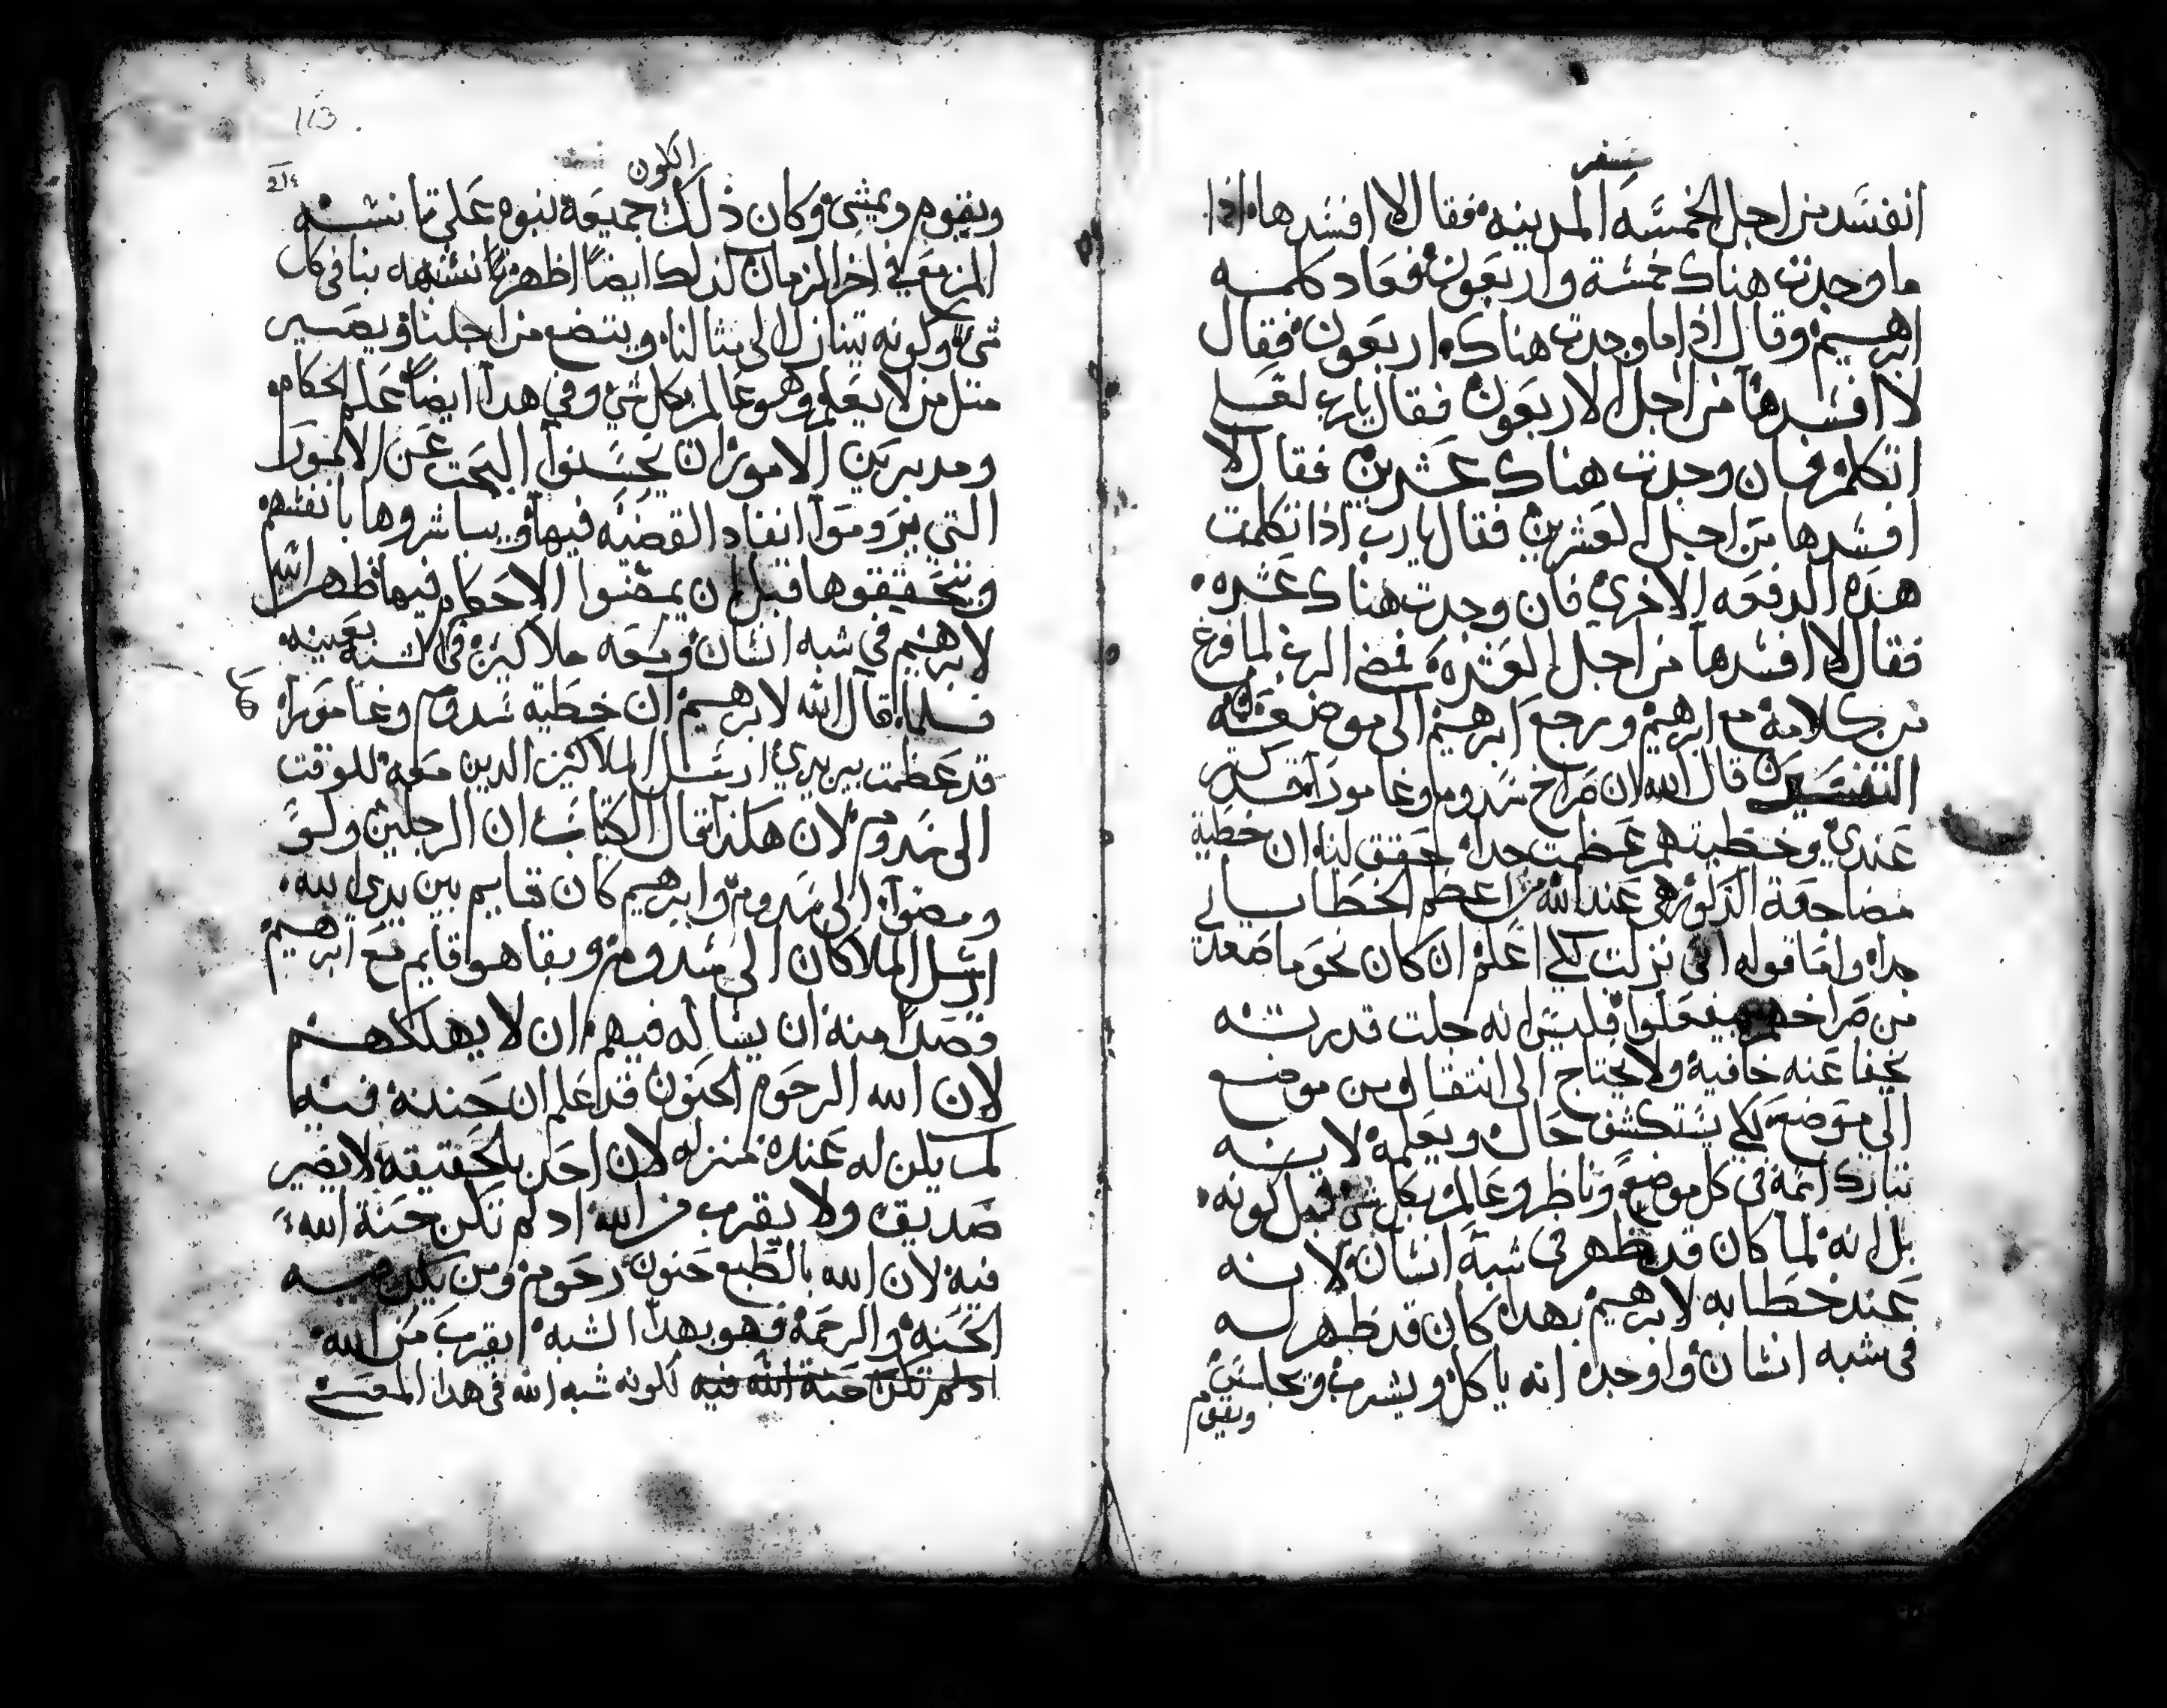 سفر
انفسد من اجل الخمسه المدينه فقال لا افسدها اذا
ما وجدت هناك خمسة واربعون فعاد كلمه
ابرهيم وقال اذا ما وجدت هناك اربعون فقال
لا افسدها من اجل الاربعون فقال يارب لعلي
اتكلم فان وجدت هناك عشرين فقال لا
افسدها من اجل العشرين فقال يارب اذا تكلمت
هذه الدفعه الاخري فان وجدت هناك عشره
فقال لا افسدها من اجل العشره فمضي الرب لما فرغ
من كلامه مع ابرهيم ورجع ابرهيم الي موضعه
التفسير قال الله لان صراخ سدوم وغامورا قد كتر
عندي وخطيتهم عظمت جدا حقق لنا ان خطية
مضاجعة الذكور هي عند الله من اعظم الخطايا
جدا واما قوله اني نزلت لكي اعلم ان كان نحو ما صعد
من صراخهم يفعلوا فليس انه جلت قدرته
يخفا عنه خافية ولا يحتاج الي انتقال من موضع
الي موضع لكي يستكشف حال ويعلمه لانه
تبارك اسمه في كل موضع وناظر وعالم بكل شي قبل كونه
بل انه لما كان قد ظهر في شبه انسان لانه
عند خطابه لابرهيم بهدا كان قد ظهر له
في شبه انسان واوجده انه ياكل ويشرب ويجلس
ويقوم
113
الكون
ويقوم ويمشي وكان ذلك جميعه نبوه علي تانسه
المزمع في اخر الزمان كذلك ايضا اظهر تشبهه بنا في كل
شي وكونه تنازل الي مثالنا ويتضع من اجلنا ويصير
متل من لا يعلم وهو عالم بكل شي وفي هدا ايضا علم الحكام
ومدبرين الامور ان يحسنوا البحت عن الامور
التي يروموا انفاد القضيه فيها ويباشروها بانفسهم
ويتحققوها قبل ان يمضوا الاحكام فيها ظهر الله
لابرهيم في شبه انسان ومعه ملاكين في الشبه بعينه
فلما قال الله لابرهيم ان خطية سدوم وغامورا
قد عظمت بين يدي ارسل الملاكين الدين معه للوقت
الي سدوم لان هكذا قال الكتاب ان الرجلين ولو
ومضوا الي سدوم وابرهيم كان قايم بين يدي الله
ارسل الملاكان الي سدوم وبقا هو قايم مع ابرهيم
قصدا منه ان يساله فيهم ان لا يهلكهم
لان الله الرحوم الحنون قد علم ان حننه فيه
لم يكن له عنده منزله لان احد بالحقيقه لا يصير
صديق ولا يقرب من الله اد لم تكن حنة الله
فيه لان الله بالطبع حنون رحوم ومن يكن فيه
الحنه والرحمة فهو بهدا الشبه يقرب من الله
اد لم تكن حنة الله فيه لكونه شبه الله في هدا المعني